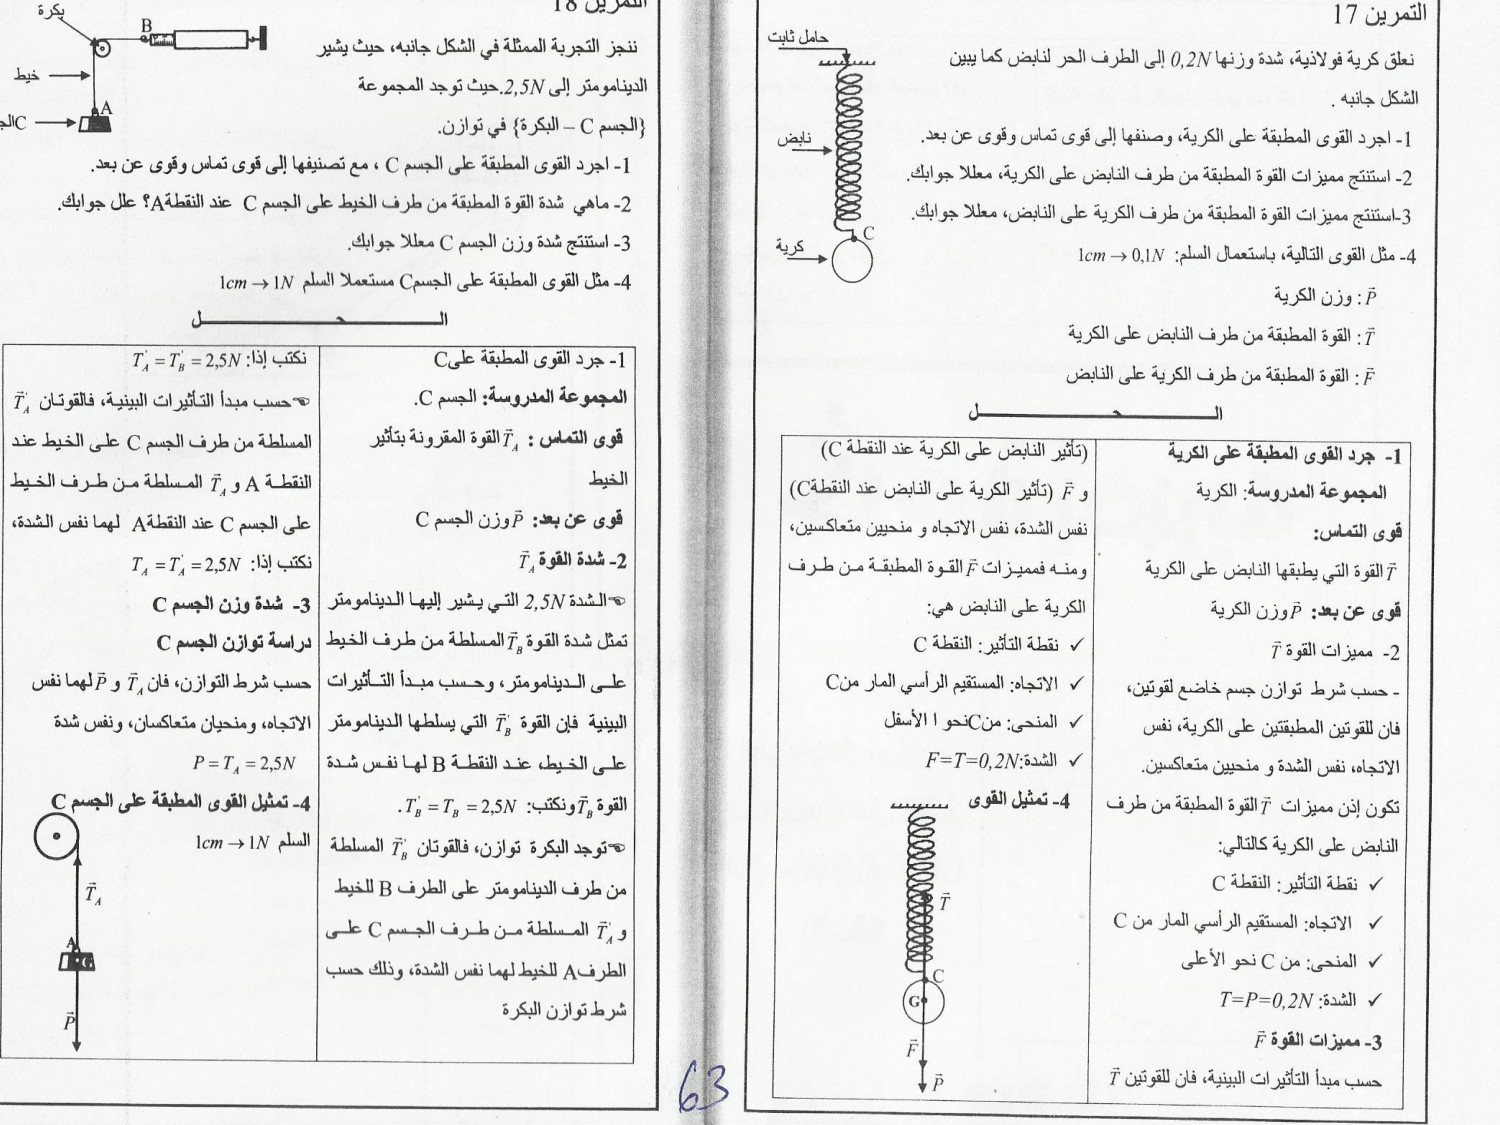 التمرين 17
نعلق كرية فولاذية، شدة وزنها 0,2N إلى الطرف الحر لنابض كما يبين
الشكل جانبه .
1- اجرد القوى المطبقة على الكرية، وصنفها إلى قوى تماس وقوى عن بعد.
2- استنتج مميزات القوة المطبقة من طرف النابض على الكرية، معللا جوابك.
3-استنتج مميزات القوة المطبقة من طرف الكرية على النابض، معللا جوابك.
4- مثل القوى التالية، باستعمال السلم: 1cm → 0,1N
P⃗ : وزن الكرية
T⃗ : القوة المطبقة من طرف النابض على الكرية
F⃗ : القوة المطبقة من طرف الكرية على النابض
حامل ثابت
نابض
C
كرية
الـــــــحـــــــل
1- جرد القوى المطبقة على الكرية
المجموعة المدروسة: الكرية
قوى التماس:
T⃗ القوة التي يطبقها النابض على الكرية
قوى عن بعد: P⃗ وزن الكرية
2- مميزات القوة T⃗
- حسب شرط توازن جسم خاضع لقوتين،
فان للقوتين المطبقتين على الكرية، نفس
الاتجاه، نفس الشدة و منحيين متعاكسين.
تكون إذن مميزات T⃗ القوة المطبقة من طرف
النابض على الكرية كالتالي:
✓ نقطة التأثير: النقطة C
✓ الاتجاه: المستقيم الرأسي المار من C
✓ المنحى: من C نحو الأعلى
✓ الشدة: T=P=0,2N
3- مميزات القوة F⃗
حسب مبدأ التأثيرات البينية، فان للقوتين T⃗
(تأثير النابض على الكرية عند النقطة C)
و F⃗ (تأثير الكرية على النابض عند النقطةC)
نفس الشدة، نفس الاتجاه و منحيين متعاكسين،
ومنه فمميزات F⃗ القوة المطبقة من طرف
الكرية على النابض هي:
✓ نقطة التأثير: النقطة C
✓ الاتجاه: المستقيم الرأسي المار منC
✓ المنحى: منCنحو ا الأسفل
✓ الشدة:F=T=0,2N
4- تمثيل القوى
T⃗
C
G
F⃗
P⃗
63
التمرين 18
ننجز التجربة الممثلة في الشكل جانبه، حيث يشير
الدينامومتر إلى 2,5N.حيث توجد المجموعة
{الجسم C – البكرة} في توازن.
1- اجرد القوى المطبقة على الجسم C ، مع تصنيفها إلى قوى تماس وقوى عن بعد.
2- ماهي شدة القوة المطبقة من طرف الخيط على الجسم C عند النقطةA؟ علل جوابك.
3- استنتج شدة وزن الجسم C معللا جوابك.
4- مثل القوى المطبقة على الجسمC مستعملا السلم 1cm → 1N
بكرة
B
خيط
A
الـــــــحـــــــل
1- جرد القوى المطبقة علىC
المجموعة المدروسة: الجسم C.
قوى التماس : T⃗A القوة المقرونة بتأثير
الخيط
قوى عن بعد: P⃗ وزن الجسم C
2- شدة القوة T⃗A
☜الشدة 2,5N التي يشير إليها الدينامومتر
تمثل شدة القوة T⃗B المسلطة من طرف الخيط
على الدينامومتر، وحسب مبدأ التأثيرات
البينية فإن القوة T⃗'B التي يسلطها الدينامومتر
على الخيط، عند النقطة B لها نفس شدة
القوة T⃗B ونكتب: T'B = TB = 2,5N.
☜توجد البكرة توازن، فالقوتان T⃗'B المسلطة
من طرف الدينامومتر على الطرف B للخيط
و T⃗'A المسلطة من طرف الجسم C على
الطرفA للخيط لهما نفس الشدة، وذلك حسب
شرط توازن البكرة
نكتب إذا: T'A = T'B = 2,5N
☜حسب مبدأ التأثيرات البينية، فالقوتان T⃗'A
المسلطة من طرف الجسم C على الخيط عند
النقطة A و T⃗A المسلطة من طرف الخيط
على الجسم C عند النقطةA لهما نفس الشدة،
نكتب إذا: TA = T'A = 2,5N
3- شدة وزن الجسم C
دراسة توازن الجسم C
حسب شرط التوازن، فان T⃗A و P⃗ لهما نفس
الاتجاه، ومنحيان متعاكسان، ونفس شدة
P = TA = 2,5N
4- تمثيل القوى المطبقة على الجسم C
السلم 1cm → 1N
T⃗A
A
G
P⃗